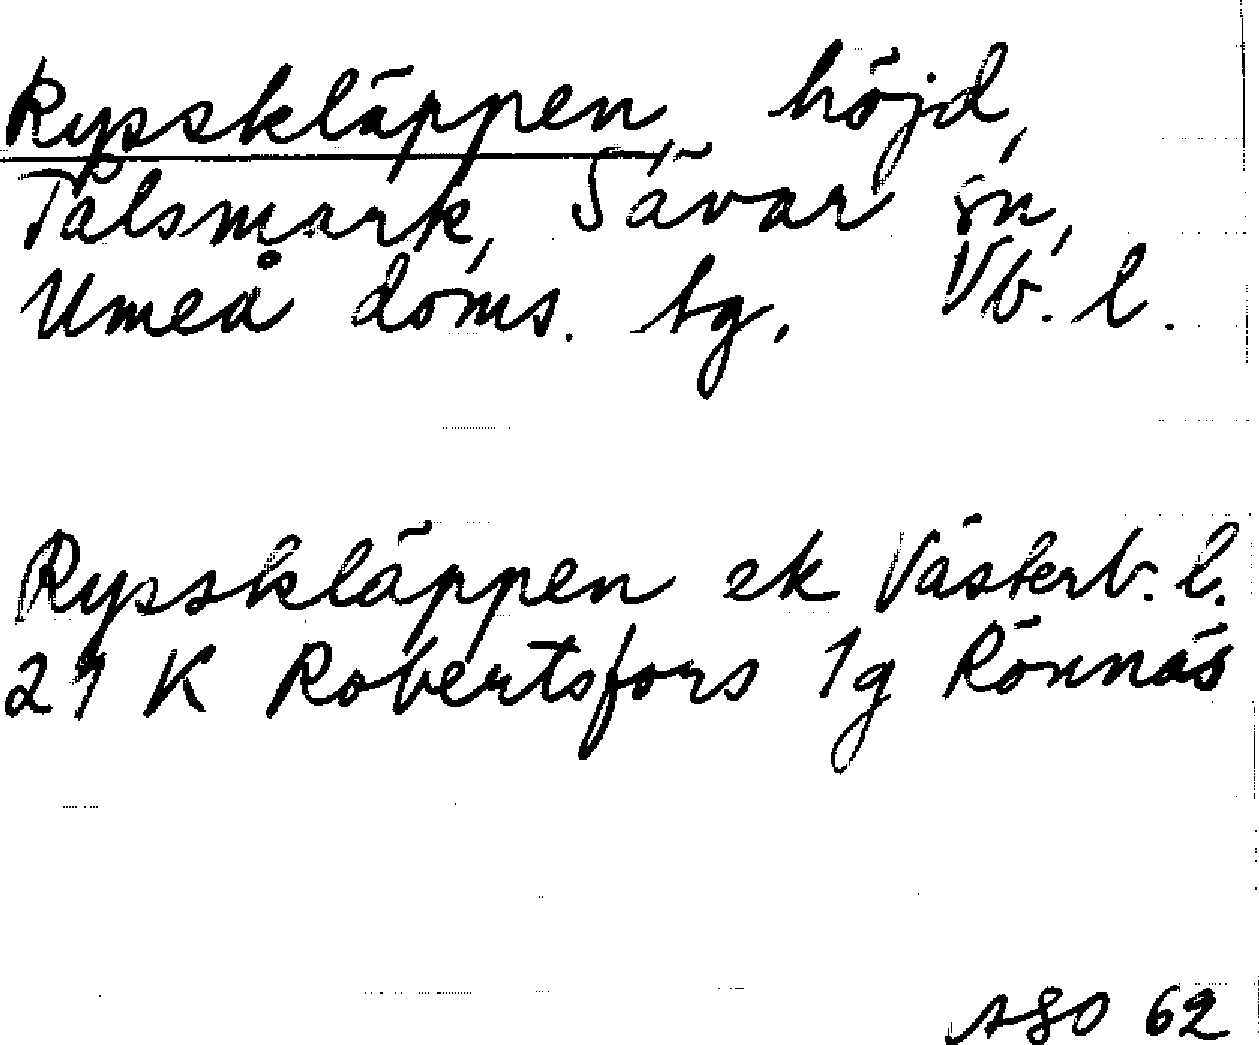 Ryssklāppen, hōjd,
Tålsmark, Sāvar sn,
Umeå doms. tg. Vb. l.
Ryssklāppen ek Västerb. l.
21 K Robertsfors 1g Rōnnäs
ASO 62